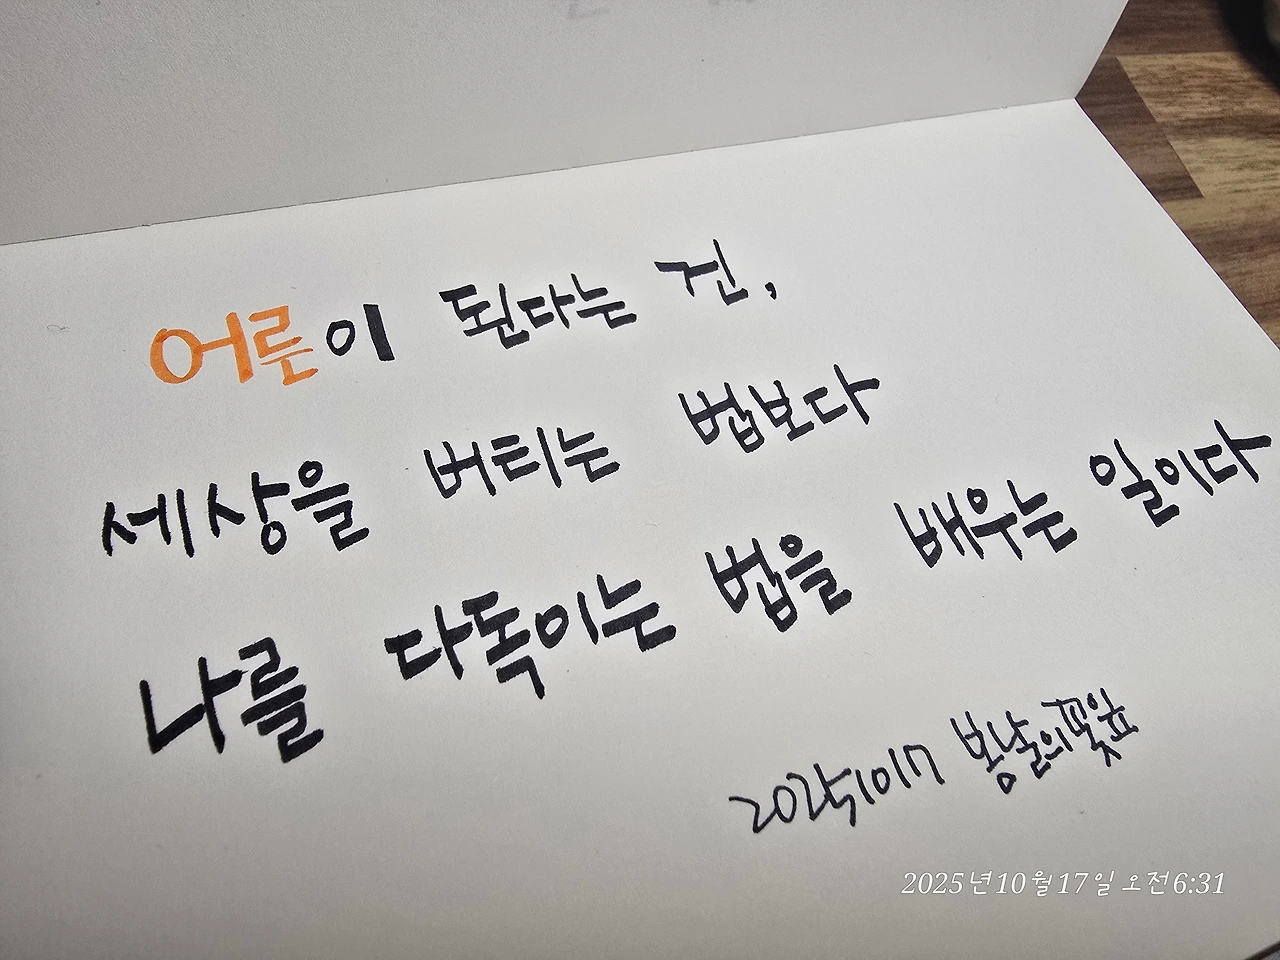 어른이 된다는 건,
세상을 버티는 법보다
나를 다독이는 법을 배우는 일이다
20251017
2025년10월17일 오전6:31